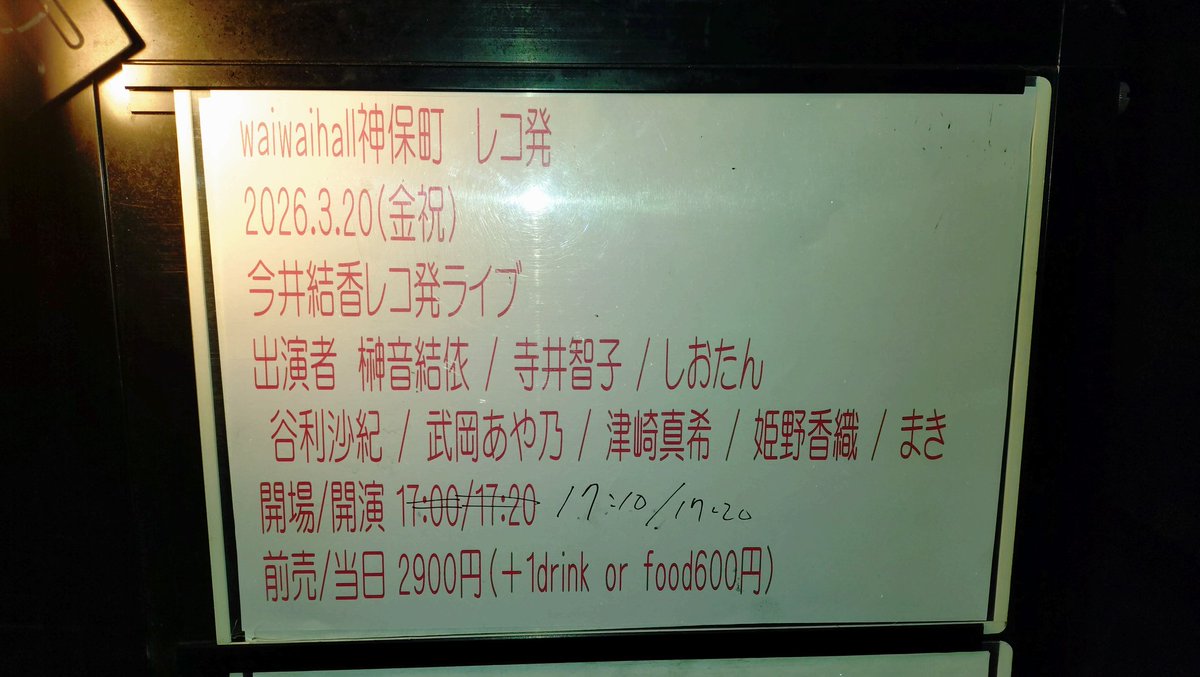 waiwaihall神保町 レコ発
2026.3.20(金祝)
今井結香レコ発ライブ
出演者 榊音結依 / 寺井智子 / しおたん
谷利沙紀 / 武岡あや乃 / 津崎真希 / 姫野香織 / まき
開場/開演 17:00/17:20 17:10/17:20
前売/当日 2900円(+1drink or food600円)